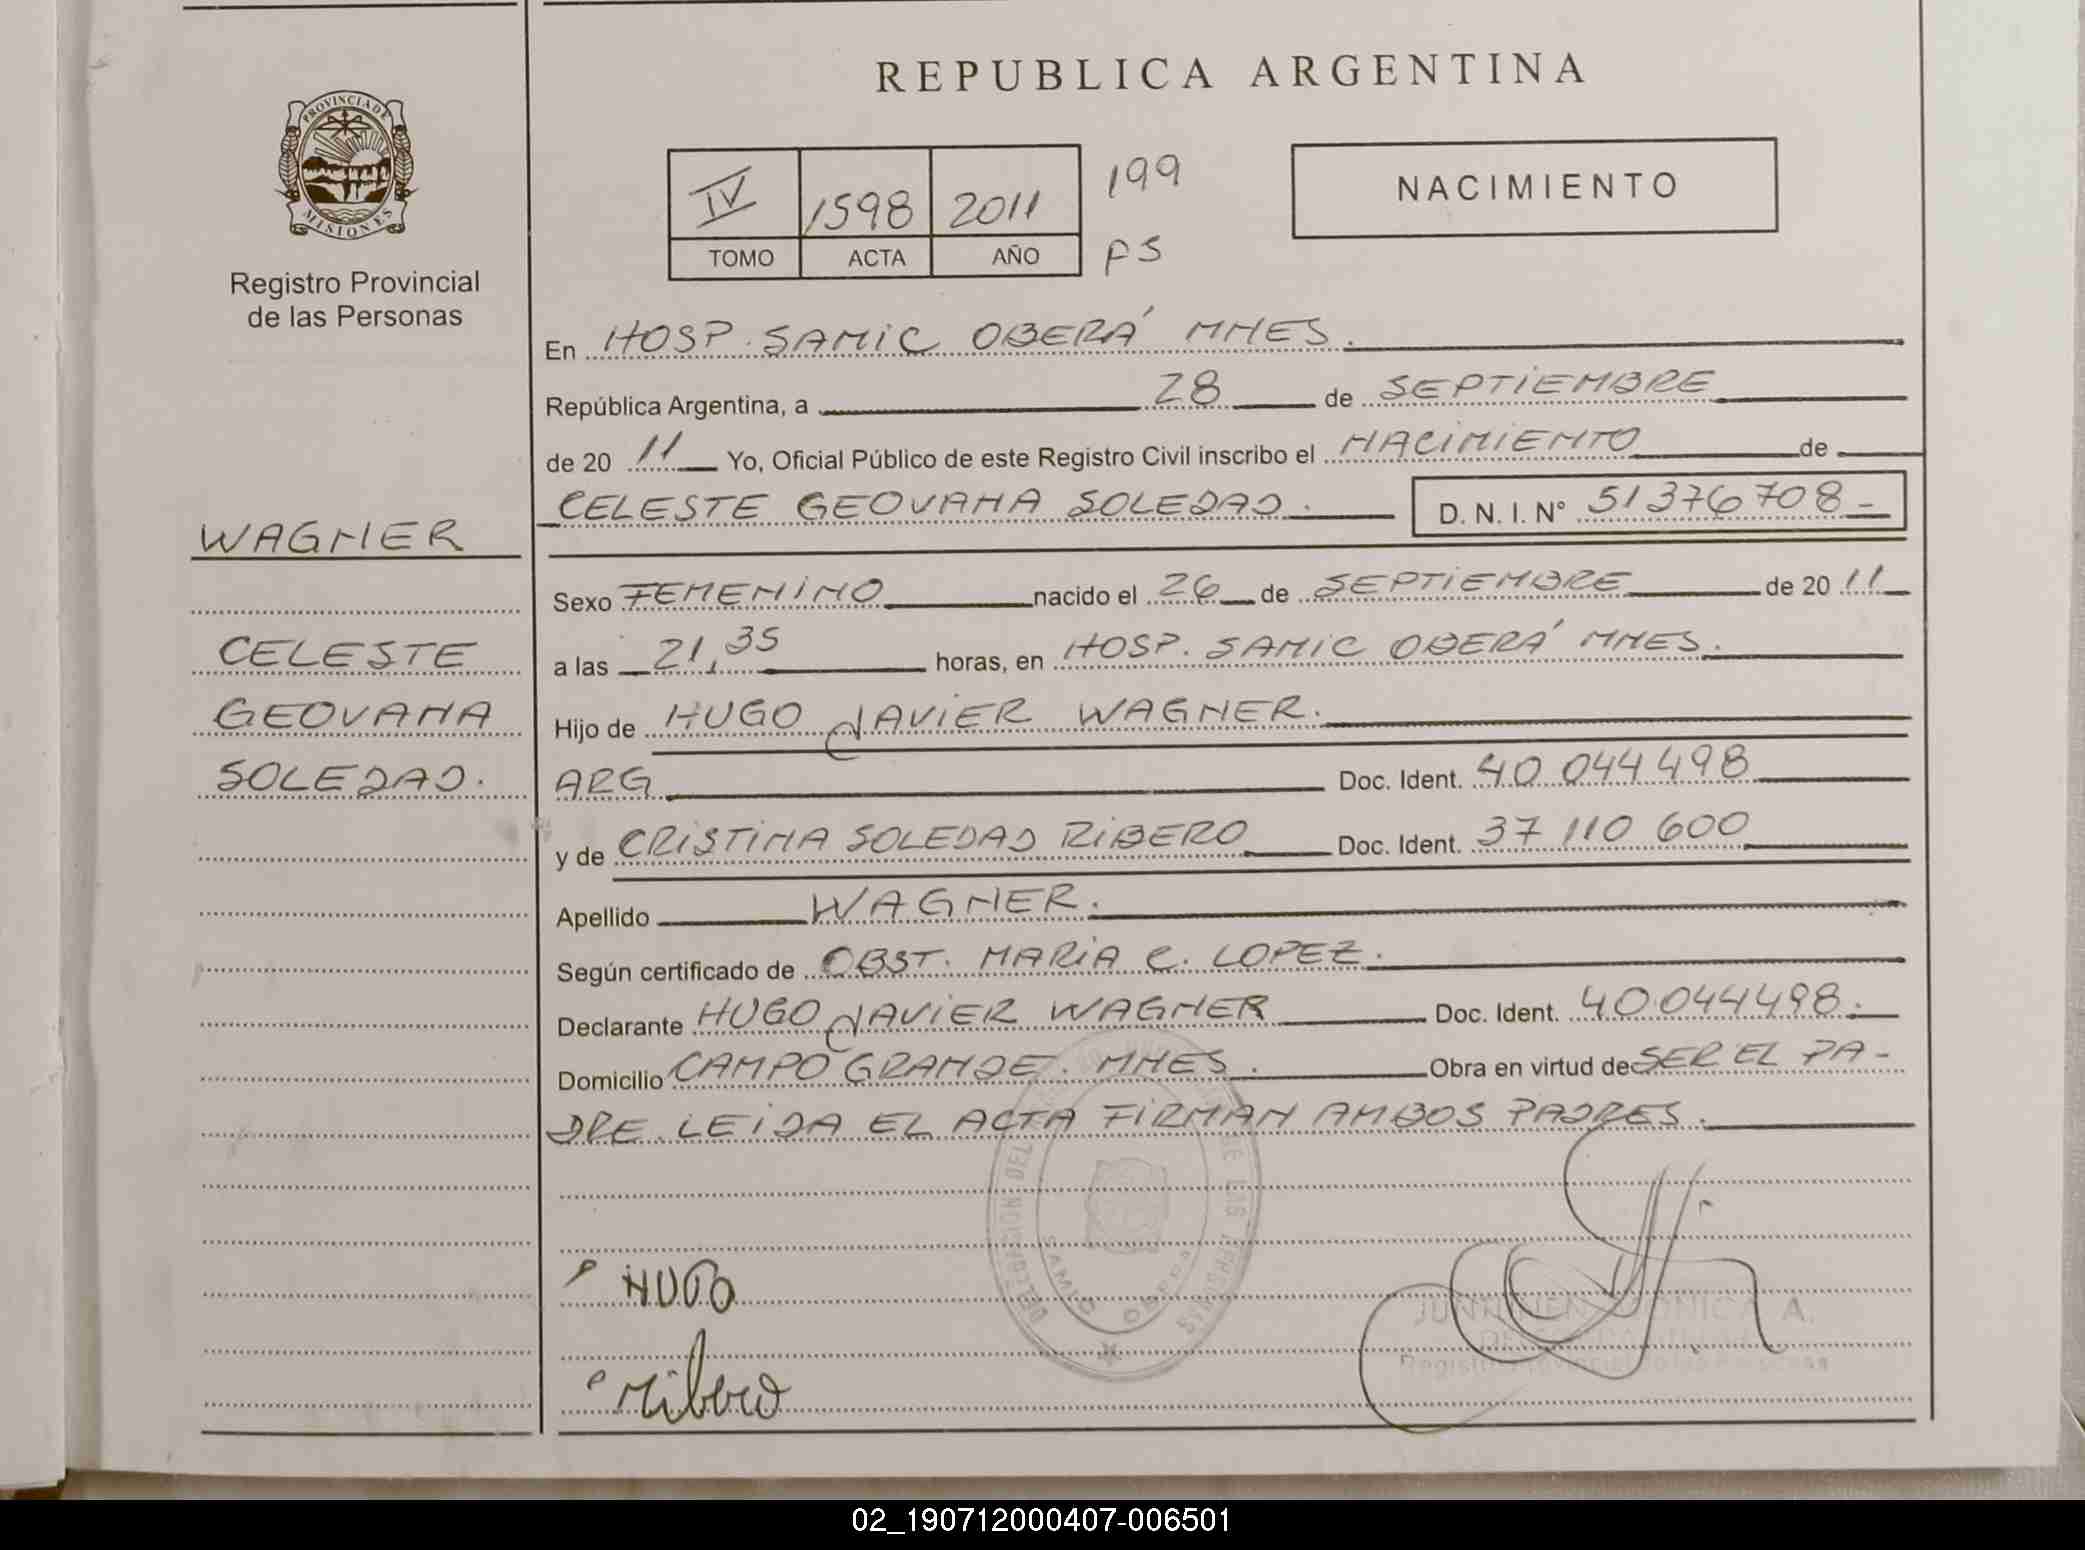 REPUBLICA ARGENTINA
PROVINCIA DE
MISIONES
Registro Provincial
de las Personas
IV 1598 2011 199
TOMO ACTA AÑO PS
NACIMIENTO
En HOSP. SAMIC OBERÁ MNES.
República Argentina, a 28 de SEPTIEMBRE
de 20 11 Yo, Oficial Público de este Registro Civil inscribo el NACIMIENTO de
CELESTE GEOVANA SOLEDAD. D. N. I. N° 51376708-
WAGNER
CELESTE
GEOVANA
SOLEDAD.
Sexo FEMENINO nacido el 26 de SEPTIEMBRE de 20 11
a las 21,35 horas, en HOSP. SAMIC OBERÁ MNES.
Hijo de HUGO JAVIER WAGNER.
ARG Doc. Ident. 40 044 498
y de CRISTINA SOLEDAD RIBERO Doc. Ident. 37 110 600
Apellido WAGNER.
Según certificado de OBST. MARIA C. LOPEZ.
Declarante HUGO JAVIER WAGNER Doc. Ident. 40.044498.
Domicilio CAMPO GRANDE. MNES. Obra en virtud de SER EL PA-
DRE. LEIDA EL ACTA FIRMAN AMBOS PADRES.
DELEGACION DEL DE LAS PERSONAS
SAMIC OBERA
HUGO
Ribero
A.
Registro Provincial de las Personas
02_190712000407-006501